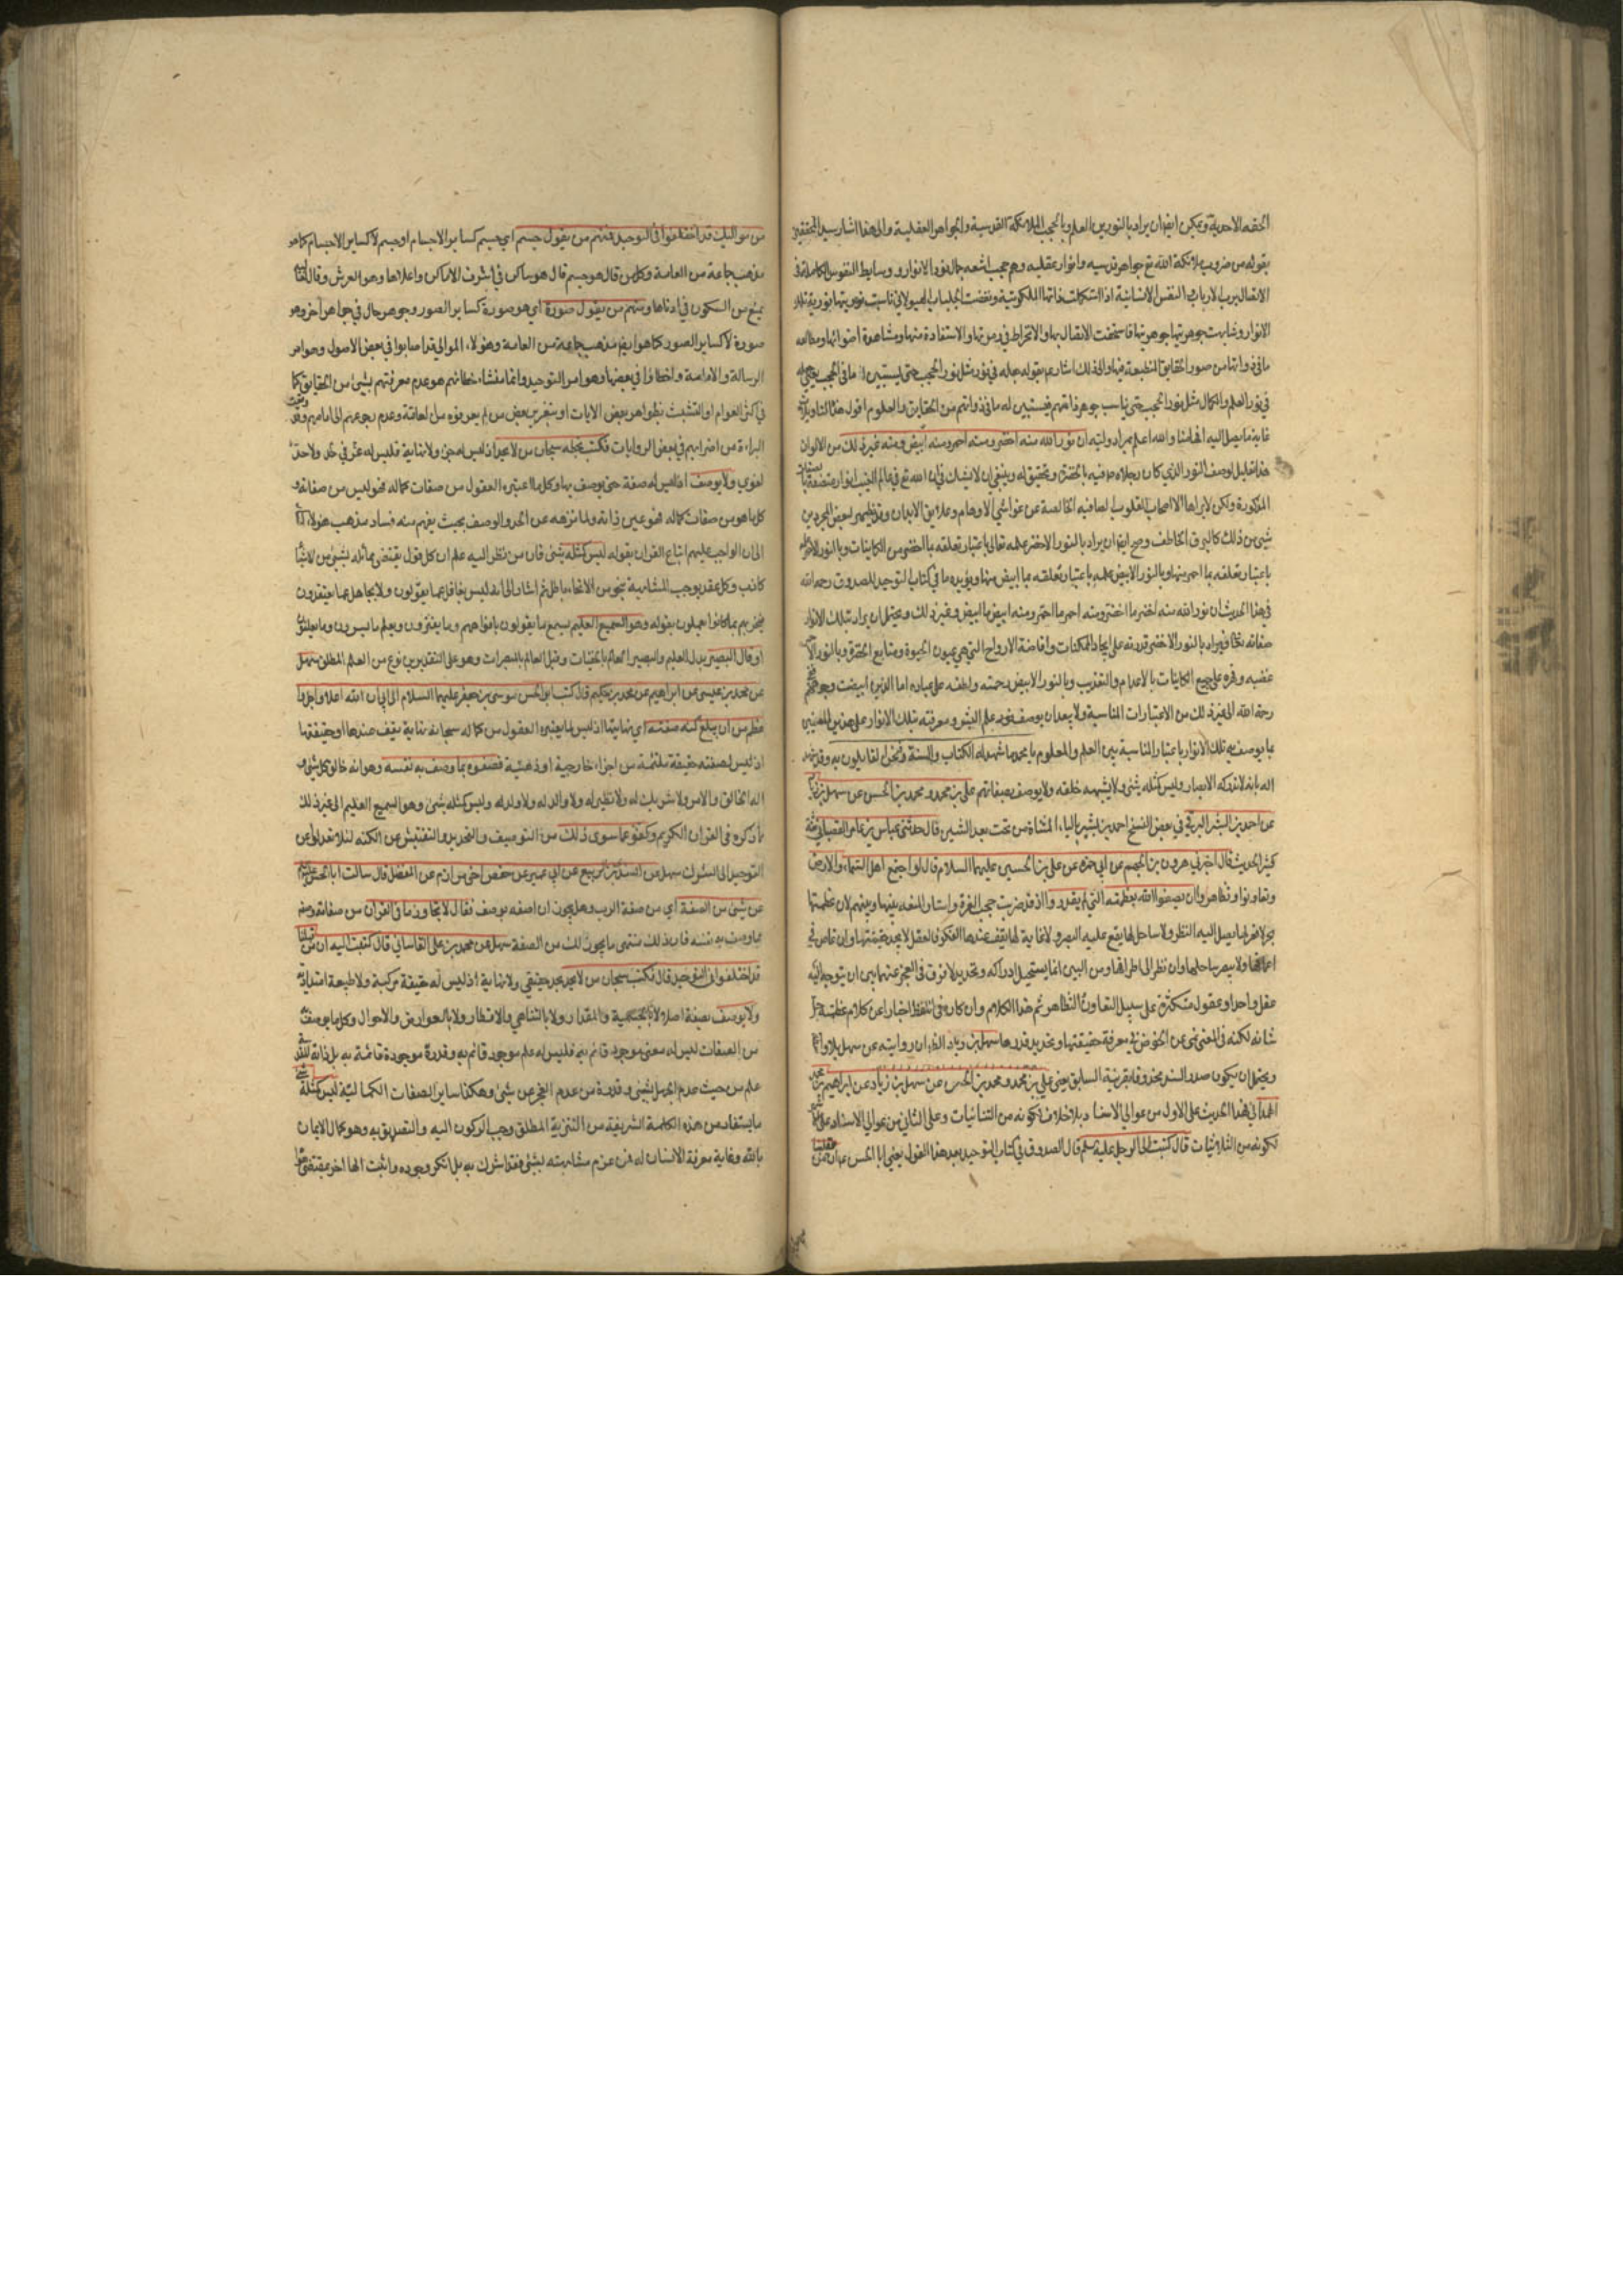 الحقه الاحدية ويمكن ايضا ان يراد بالنورين العلم وبالحجب الملائكة القدسية والجواهر العقلية والى هذا اشار سيد المحققين
بقوله من ضروب ملائكة الله تع جواهر قدسيه وانوار عقليه وهم حجب اشعه جمال نور الانوار ووسايط النفوس الكاملة في
الاتصال برب الارباب النفس الانسانية اذا استكملت ذاتها الملكوتية ونفضت الجلباب الهيولاني ناسبت نوريتها نورية تلك
الانوار وشابهت جوهريتها جوهريتها فاستحقت الاتصال بها والانخراط في زمرتها والاستفادة منها ومشاهدة اضوائها ومطالعه
ما في ذواتها من صور الحقايق المنطبعة فيها والى ذلك اشار ع بقوله جعله في نور مثل نور الحجب حتى يستبين له ما في الحجب يعني جعله
في نور العلم والكمال مثل نور الحجب حتى يناسب جوهر ذاته جوهر ذاتهم فيستبين له ما في ذواتهم من الحقايق والعلوم اقول هذا التاويل
غاية ما يصل اليه افهامنا والله اعلم بمراد وليه ان نور الله منه اخضر ومنه احمر ومنه ابيض ومنه غير ذلك من الالوان
هذا تعليل لوصف النور الذي كان رجلاه ص فيه بالخضرة وتحقيق له وينبغي ان لا يشك في ان الله تع في عالم الغيب انوار متصفة بصفات
المذكورة ولكن لا يراها الا اصحاب القلوب الصافيه الخالصة عن غواشي الاوهام وعلايق الابدان وقد يظهر لبعض المجردين
شيء من ذلك كالبرق الخاطف وصح ايضا ان يراد بالنور الاخضر علمه تعالى باعتبار تعلقه بما اخضر من الكاينات وبالنور الاحمر علمه
باعتبار تعلقه بما احمر منها وبالنور الابيض علمه باعتبار تعلقه بما ابيض منها ويؤيده ما في كتاب التوحيد للصدوق رحمه الله
في هذا الحديث ان نور الله منه اخضر ما اخضر ومنه احمر ما احمر ومنه ابيض ما ابيض وغير ذلك ويحتمل ان يراد بتلك الانوار
صفاته تعالى فيراد بالنور الاخضر قدرته على ايجاد الممكنات وافاضة الارواح التي هي عيون الحيوة ومنابع الخضرة وبالنور الاحمر
غضبه وقهره على جميع الكاينات بالاعدام والتعذيب وبالنور الابيض رحمته ولطفه على عباده اما الذين ابيضت وجوههم ففي
رحمة الله الى غير ذلك من الاعتبارات المناسبة ولا يبعد ان يوصف نور علم البشر ومعرفته بتلك الانوار على هذين المعنيين
بما يوصف به تلك الانوار باعتبار المناسبة بين العلم والمعلوم يا محمد ما شهد له الكتاب والسنة فنحن القايلون به وقد شهد
الله بانه لا تدركه الابصار وليس كمثله شئ ولا يشبهه خلقه ولا يوصف بصفاتهم علي بن محمد ومحمد بن الحسن عن سهل بن زياد
عن احمد بن البشر البرقي في بعض النسخ احمد بن بشير بالياء المثناة من تحت بعد الشين قال حدثني عباس بن عامر القصباني ثقة
كثير الحديث قال اخبرني هرون بن الجهم عن ابي حمزة عن علي بن الحسين عليهما السلام قال قال لو اجتمع اهل السماء والارض
وتعاونوا وتظاهروا ان يصفوا الله بعظمته التي لم يقدروا اذ قد ضربت حجب العزة واستار المنعه بينها وبينهم لان عظمتها
بحر لا قعر لها يصل اليه النظر ولا ساحل لها يقع عليه البصر ولا غاية لها يقف عندها الفكر فان العقل لا يجد حقيقتها وان غاص في
اعماقها ولا يبصر ساحلها وان نظر الى اطرافها ومن البين ان ما يستحيل ادراكه وتحديده لا فرق في العجز عنه بين ان يتوجه اليه
عقل واحد او عقول متكثرة على سبيل التعاون والتظاهر ثم هذا الكلام وان كان في اللفظ اخبارا عن كلام عظمته جل
شانه لكنه في المعنى نهى عن الخوض في معرفة حقيقتها وتحديد قدرها سهل بن زياد الظ ان روايته عن سهل بلا واسطة
ويحتمل ان يكون صدر السند محذوفا بقرينة السابق يعني علي بن محمد ومحمد بن الحسن عن سهل بن زياد عن ابراهيم بن محمد
الهمداني هذا الحديث على الاول من عوالي الاسناد بلا خلاف لكونه من الثنائيات وعلى الثاني من عوالي الاسناد على
لكونه من الثلاثيات قال كتبت الى الرجل عليه سلم قال الصدوق في كتاب التوحيد بعد هذا القول يعني ابا الحسن ع ان من قبلنا
من مواليك قد اختلفوا في التوحيد فمنهم من يقول جسم اي جسم كساير الاجسام او جسم لا كساير الاجسام كما هو
مذهب جماعة من العامة وكل من قال هو جسم قال هو ساكن في اشرف الاماكن واعلاها وهو العرش وقال
يمتنع من السكون في ادناها ومنهم من يقول صورة اي هو صورة كساير الصور وجوهر حال في جواهر اخر وهو
صورة لا كساير الصور كما هو ايضا مذهب جماعة من العامة وهؤلاء الموالي قد اصابوا في بعض الاصول وهو امر
الرسالة والامامة واخطاوا في بعضها وهو امر التوحيد وانما منشاء خطائهم هو عدم معرفتهم بشئ من الحقايق كما
في اكثر العوام او التشبث بظواهر بعض الايات او بتغرير بعض من لم يعرفوه من العامة وعدم رجوعهم الى امامهم وقد وقعت
البراءة من اضرابهم في بعض الروايات فكتب بخطه سبحان من لا يحد اذ ليس له جزء ولا نهاية فليس له عز في حد ولا حد
لغوي ولا يوصف اذ ليس له صفة حتى يوصف بها وكل ما اعتبره العقول من صفات كماله فهو ليس من صفاته و
كل ما هو من صفات كماله فهو عين ذاته ولما نزهه عن الحد والوصف بحيث يفهم منه فساد مذهب هؤلاء اشار
الى ان الواجب عليهم اتباع القران بقوله ليس كمثله شئ فان من نظر اليه علم ان كل قول يقتضي مماثلة بشئ من الاشياء
كاذب وكل عقد يوجب المشابهة بنحو من الانحاء باطل ثم اشار الى انه ليس بغافل عما يقولون ولا بجاهل عما يعتقدون
فيجزيهم بما كانوا يعملون بقوله وهو السميع العليم يسمع ما يقولون بافواههم وما يفترون ويعلم ما يسرون وما يعلنون
او قال البصير بدل العليم والبصير العالم بالخفيات وقيل العالم بالمبصرات وهو على التقديرين نوع من العلم المطلق سهل
عن محمد بن عيسى عن ابراهيم عن محمد بن حكيم قال كتب ابو الحسن موسى بن جعفر عليهما السلام الى ابي ان الله اعلا واجل وا
عظم من ان يبلغ كنه صفته اي نهايتها اذ ليس لما يعتبره العقول من كماله سبحانه نهاية تقف عندها او حقيقتها
اذ ليس لصفته حقيقة ملتئمة من اجزاء خارجية او ذهنية فصفوه بما وصف به نفسه وهو انه خالق كل شئ و
له الخالق والامر ولا شريك له ولا نظير له ولا والد له ولا ولد له وليس كمثله شئ وهو السميع العليم الى غير ذلك
مما ذكره في القران الكريم وكفوا عما سوى ذلك من التوصيف والتحديد والتفتيش عن الكنه لئلا تعدلوا عن
التوحيد الى الشرك سهل عن السندي بن الربيع عن ابن ابي عمير عن حفص اخي مرازم عن المفضل قال سالت ابا الحسن عليه السلم
عن شئ من الصفة اي من صفة الرب وهل يجوز ان اصفه بوصف فقال لا تجاوز ما في القران من صفاته وصفه
بما وصف به نفسه فان ذلك منتهى ما يجوز لك من الصفة سهل عن محمد بن علي القاساني قال كتبت اليه ان من قبلنا
قد اختلفوا في التوحيد قال فكتب سبحان من لا يحد بحد حقيقي ولا نهاية اذ ليس له حقيقة مركبة ولا طبيعة امتدادية
ولا يوصف بصفة اصلا لا بالجسمية والمقدار ولا بالتناهي والاقطار ولا بالعوارض والاحوال وكل ما يوصف به
من الصفات ليس له معنى موجود قائم به فليس له علم موجود قائم به وقدرة موجودة قائمة به بل ذاته
علم من حيث عدم الجهل بشئ وقدرة من عدم العجز عن شئ وهكذا ساير الصفات الكمالية ليس كمثله شئ
ما يستفاد من هذه الكلمة الشريفة من التنزيه المطلق وجب الركون اليه والتصديق به وهو كمال الايمان
بالله وغاية معرفة الانسان له فمن عزم مشابهته لشئ فقد اشرك به بل انكر وجوده واثبت الها اخر بمقتضى